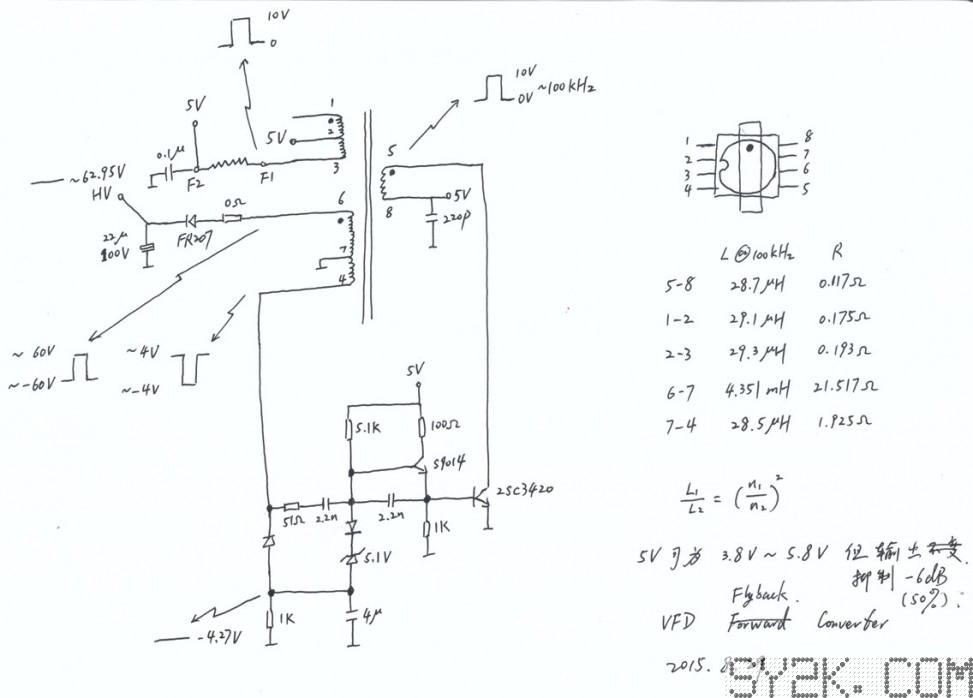 10V
0
10V
0V ~100kHz
5V
1
2
5V
3
0.1μ
F2
F1
5
8
5V
220p
~62.95V
HV
0Ω
6
7
4
22μ
100V
FR207
~60V
~-60V
~4V
~-4V
5V
5.1K
100Ω
S9014
2SC3420
51Ω
2.2n
2.2n
1K
5.1V
1K
4μ
-4.27V
1 8
2 7
3 6
4 5
L@100kHz R
5-8 28.7μH 0.117Ω
1-2 29.1μH 0.175Ω
2-3 29.3μH 0.193Ω
6-7 4.351mH 21.517Ω
7-4 28.5μH 1.925Ω
L1/L2 = (n1/n2)²
5V可为 3.8V~5.8V 但输出不变.
抑制 -6dB
(50%).
Flyback.
VFD Forward Converter
2015. 8.
SY2K.COM